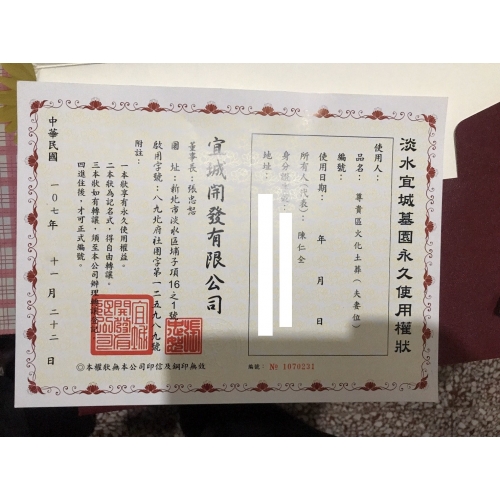 淡水宜城墓園永久使用權狀
使用人：
品名：尊貴區火化土葬（夫妻位）
編號：
使用日期：　年　月　日
所有人（代表）：陳仁全
身分證字號：
地址：
宜城開發有限公司
董事長：張忠恕
園址：新北市淡水區埔子頂16之1號
啟用字號：八九北府社園字第一二五九八九號
附註：
一本狀享有永久使用權益。
二本狀為記名式，得自由轉讓。
三本狀如有轉讓，須至本公司辦理登記
四進住後，才可正式編號。
中華民國一〇七年十一月二十二日
◎本權狀無本公司印信及鋼印無效
編號：№ 1070231